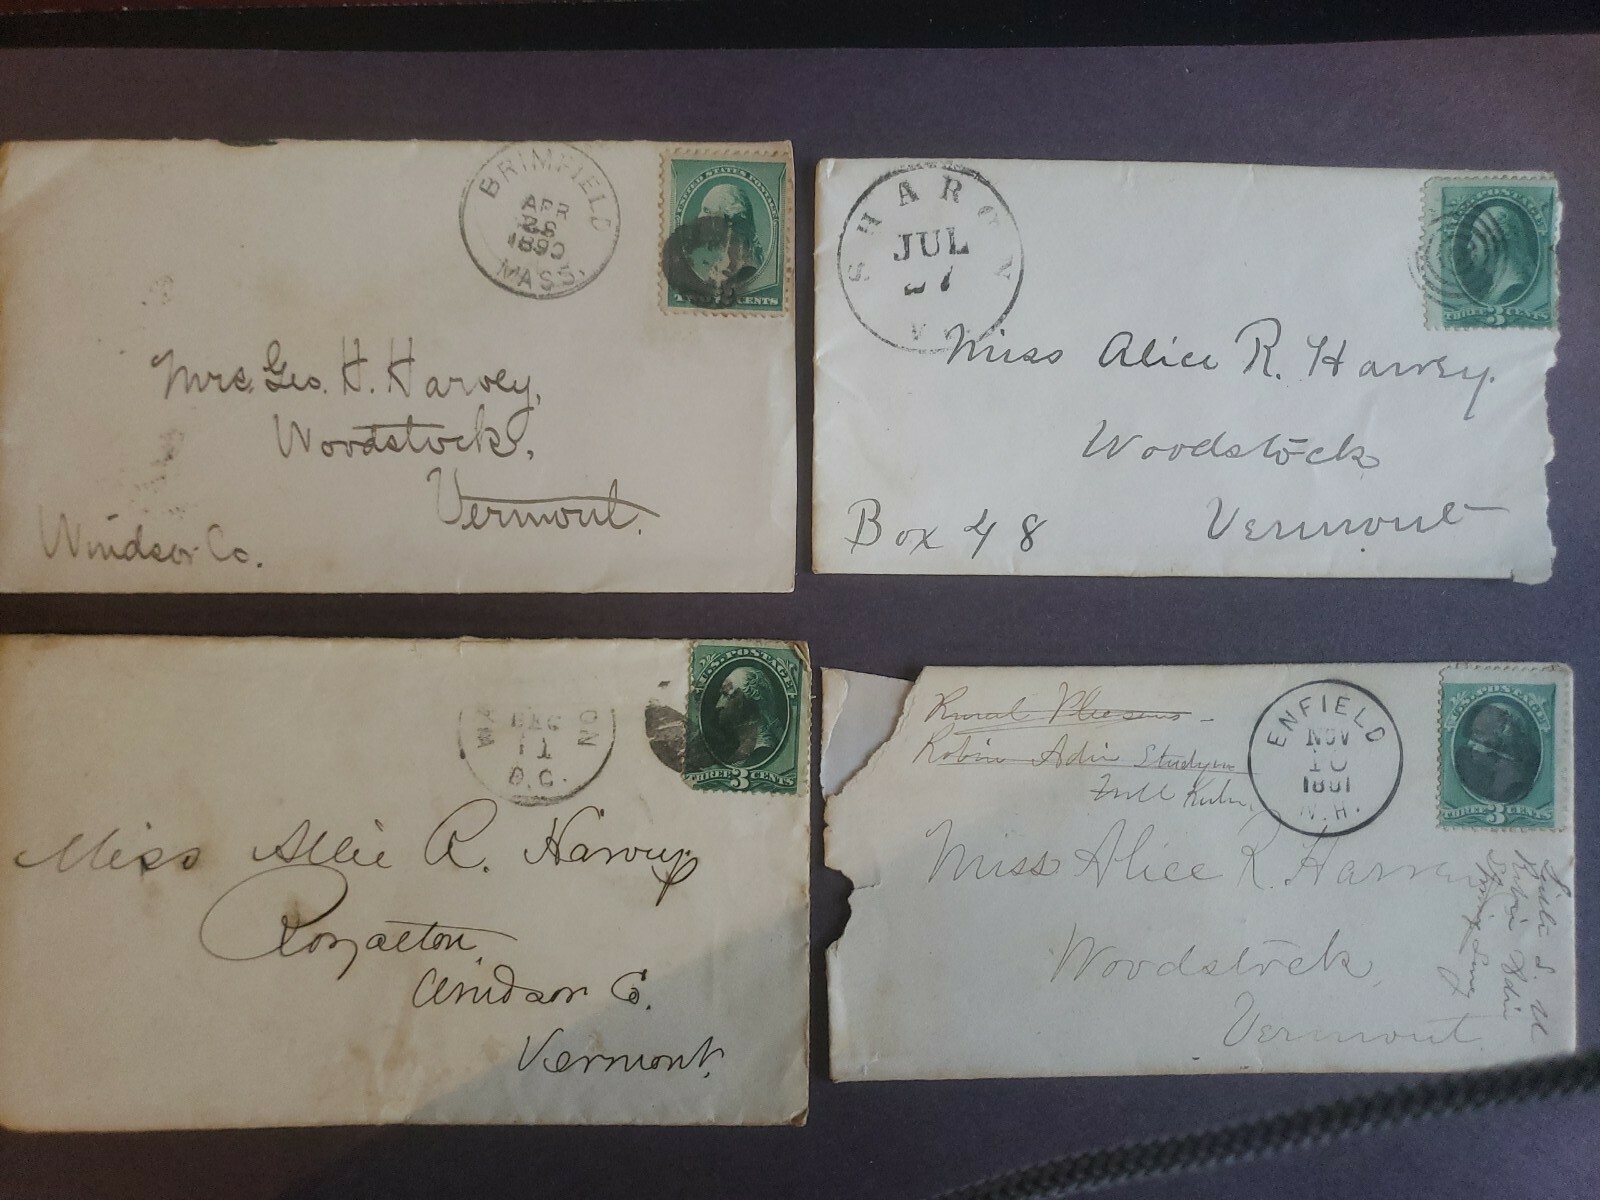 BRIMFIELD
APR
28
1890
MASS.
UNITED STATES POSTAGE
TWO CENTS
Mrs. Geo. H. Harvey,
Woodstock,
Vermont.
Windsor Co.
SHARON
JUL
27
V
U.S. POSTAGE
THREE 3 CENTS
Miss Alice R. Harvey.
Woodstock
Vermont
Box 48
WA ON
DEC
11
D.C.
U.S. POSTAGE
THREE 3 CENTS
Miss Allie R. Harvey
Royalton
Windsor Co.
Vermont.
Rural
Robin Adair
ENFIELD
NOV
10
1881
N.H.
U.S. POSTAGE
THREE 3 CENTS
Miss Alice R. Harvey
Woodstock,
Vermont.
Robin Adair